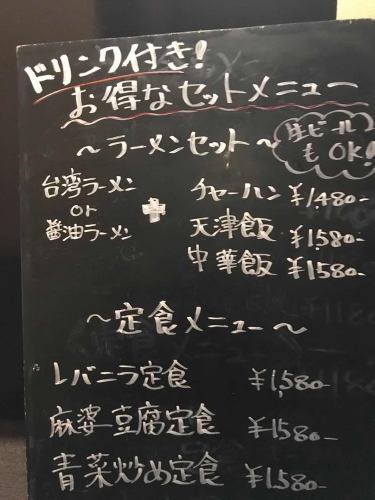 ドリンク付き!
お得なセットメニュー
〜ラーメンセット〜
生ビール
もOK!
台湾ラーメン
or
醤油ラーメン
+
チャーハン ¥1,480-
天津飯 ¥1,580-
中華飯 ¥1,580-
〜定食メニュー〜
レバニラ定食 ¥1,580-
麻婆豆腐定食 ¥1580-
青菜炒め定食 ¥1,580-